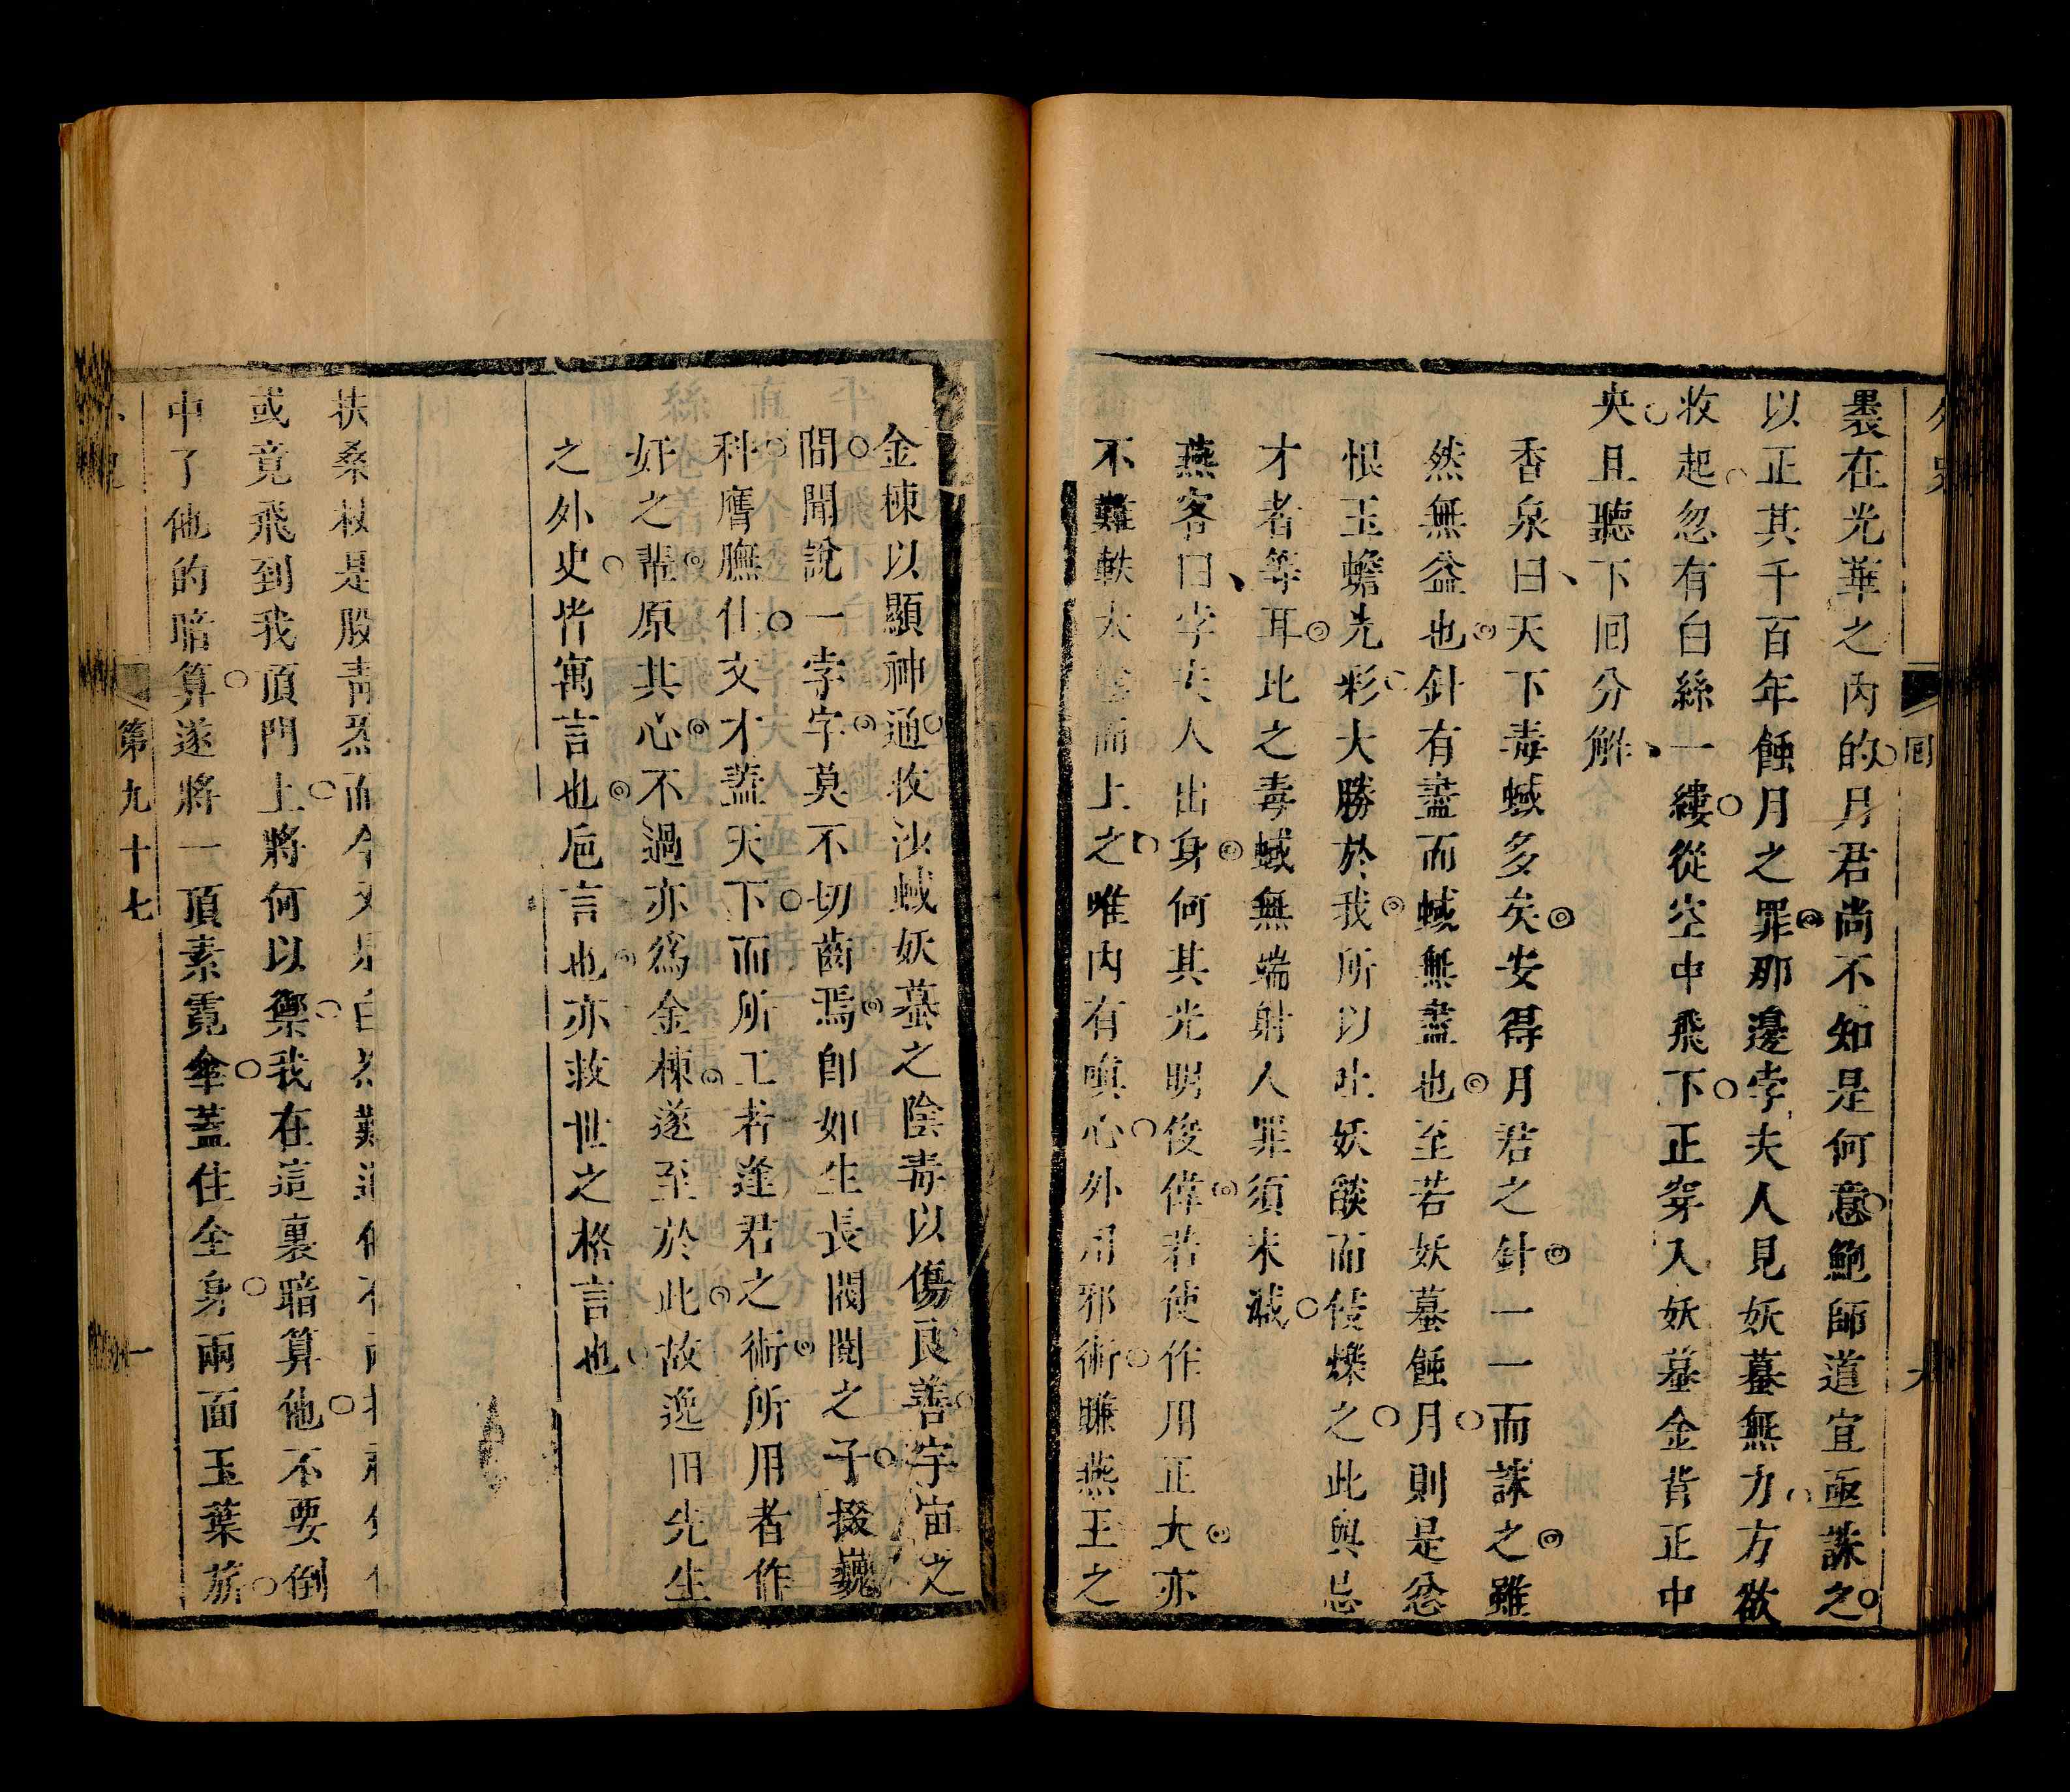 外史
回
褁在光華之內的月君尚不知是何意鮑師道宜亟誅之
以正其千百年蝕月之罪那邊孛夫人見妖蟇無力方欲
收起忽有白絲一縷從空中飛下正穿入妖蟇金背正中
央且聽下囘分解
香泉曰天下毒蜮多矣安得月君之針一一而誅之雖
然無益也針有盡而蜮無盡也至若妖蟇蝕月則是忿
恨玉蟾光彩大勝於我所以吐妖燄而侵爍之此與忌
才者等耳此之毒蜮無端射人罪須末减
燕客曰孛夫人出身何其光明俊偉若使作用正大亦
不難軼太 而上之唯內有嗔心外用邪術賺燕王之
金棟以顯神通收沙蜮妖蟇之陰毒以傷良善宇宙之
間聞說一孛字莫不切齒焉卽如生長閥閱之子掇巍
科膺膴仕文才蓋天下而所工者逢君之術所用者作
奸之輩原其心不過亦爲金棟遂至於此故逸田先生
之外史皆寓言也巵言也亦救世之格言也
扶桑杖是股靑炁而今
或竟飛到我頂門上將何以禦我在這裏暗算他不要倒
中了他的暗算遂將一頂素霓傘蓋住全身兩面玉葉旂
第九十七
一